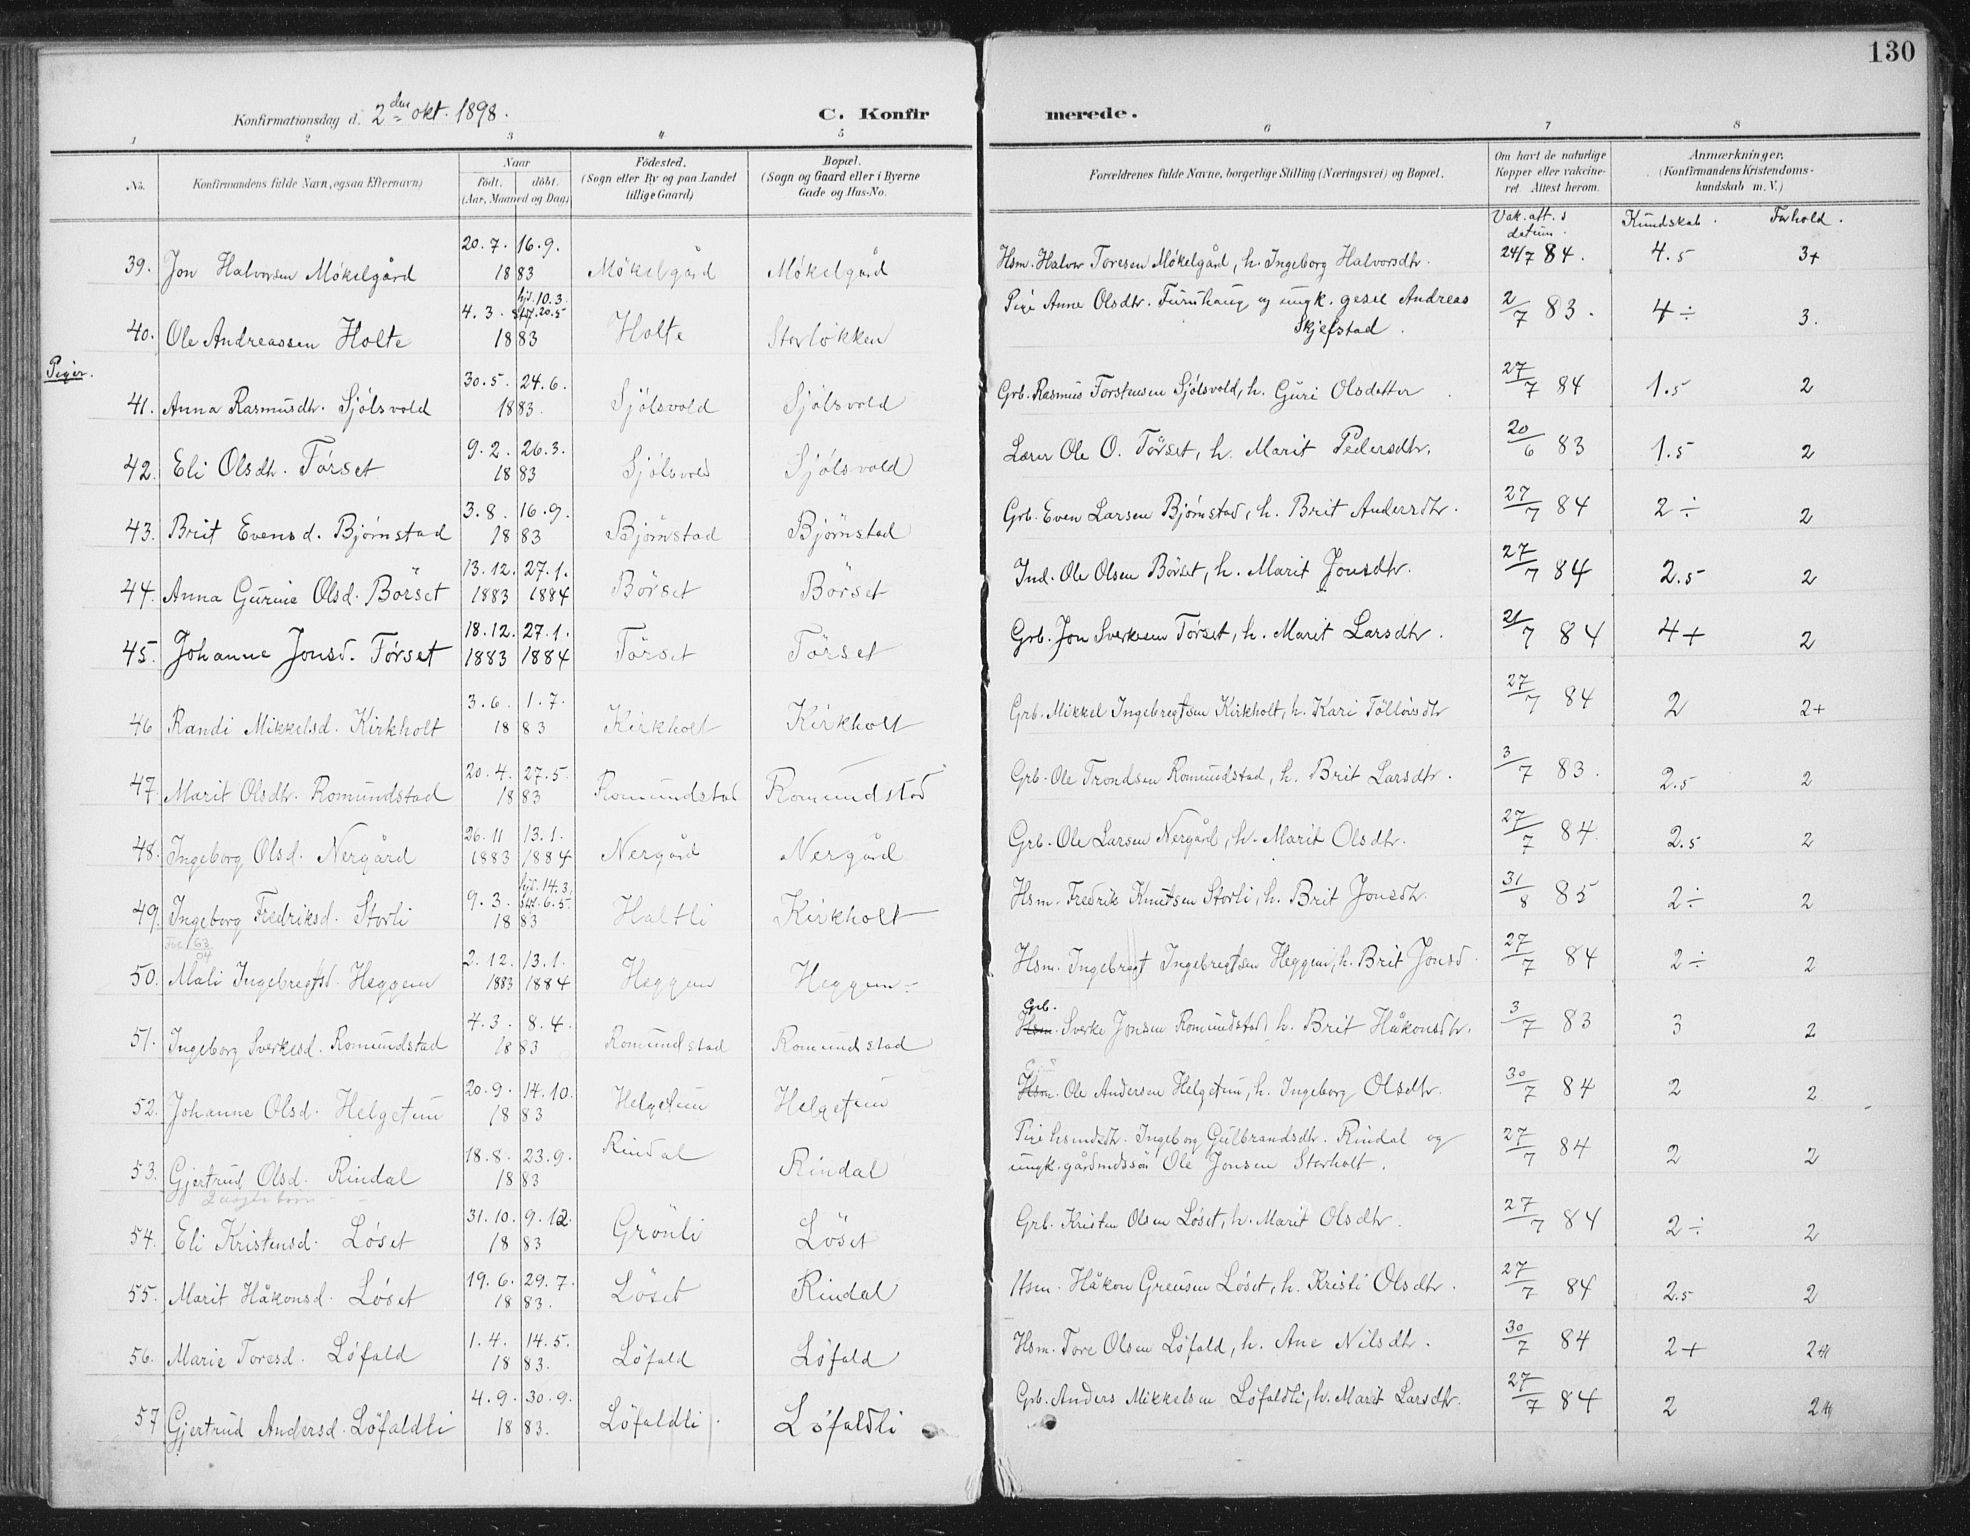 130
Konfirmationsdag d. 2den okt. 1898. C. Konfirmerede.
1 2 3 4 5 6 7 8
No. Konfirmandens fulde Navn, ogsaa Efternavn) Naar født, døbt. (Aar, Maaned og Dag) Födested. (Sogn eller By og paa Landet tillige Gaard) Bopæl. (Sogn og Gaard eller i Byerne Gade og Hus-No. Forældrenes fulde Navne, borgerlige Stilling (Næringsvei) og Bopæl. Om havt de naturlige Kopper eller vakcineret. Attest herom. Anmærkninger. (Konfirmandens Kristendomskundskab m. V.)
Vak. att.s datum. Kundskab. Forhold.
39. Jon Halvorsen Møkelgård 20.7. 16.9. 1883 Møkelgård Møkelgård Hsm. Halvor Toresen Møkelgård, h. Ingeborg Halvorsdtr. 24/7 84. 4.5 3+
40. Ole Andreassen Holte 4.3. hjd. 10.3. stf. 20.5 1883 Holte Storløkken Pige Anne Olsdtr. Furuhaug og ungk. gesel Andreas Skjefstad. 2/7 83. 4÷ 3.
Piger.
41. Anna Rasmusdtr. Sjølsvold 30.5. 24.6. 1883. Sjølsvold Sjølsvold Grb. Rasmus Torstensen Sjølsvold, h. Guri Olsdatter 27/7 84 1.5 2
42. Eli Olsdtr. Tørset 9.2. 26.3. 1883 Sjølsvold Sjølsvold Lærer Ole O. Tørset, h. Marit Pedersdtr. 20/6 83 1.5 2
43. Brit Evensd. Bjørnstad 3.8. 16.9. 1883 Bjørnstad Bjørnstad Grb. Even Larsen Bjørnstad, h. Brit Andersdtr. 27/7 84 2÷ 2
44. Anna Gurine Olsd. Børset 13.12. 27.1. 1883 1884 Børset Børset Ind. Ole Olsen Børset, h. Marit Jonsdtr. 27/7 84 2.5 2
45. Johanne Jonsd. Tørset 18.12. 27.1. 1883 1884 Tørset Tørset Grb. Jon Sverkesen Tørset, h. Marit Larsdtr. 21/7 84 4+ 2
46 Randi Mikkelsd. Kirkholt 3.6. 1.7. 1883 Kirkholt Kirkholt Grb. Mikkel Ingebregtsen Kirkholt, h. Kari Tølløvsdtr 27/7 84 2 2+
47. Marit Olsdtr. Romundstad 20.4. 27.5. 1883 Romundstad Romundstad Grb. Ole Trondsen Romundstad, h. Brit Larsdtr. 3/7 83. 2.5 2
48. Ingeborg Olsd. Nergård 26.11 13.1. 1883 1884 Nergård Nergård Grb. Ole Larsen Nergård, h. Marit Olsdtr. 27/7 84. 2.5 2
49. Ingeborg Fredriksd. Storli 9.3. hjd. 14.3. stf. 6.5. 1883 Haltli Kirkholt Hsm. Fredrik Knutsen Storli, h. Brit Jonsdtr. 31/8 85 2÷ 2
50. Mali Ingebregtsd. Heggem 2.12. 13.1. 1883 1884 Heggem Heggem Hsm. Ingebregt Ingebregtsen Heggem, h. Brit Jonsd. 27/7 84 2÷ 2
51. Ingeborg Sverkesd. Romundstad 4.3. 8.4. 1883 Romundstad Romundstad Grb. Hsm. Sverke Jonsen Romundstad, h. Brit Håkonsdtr. 3/7 83 3 2
52. Johanne Olsd. Helgetun 20.9. 14.10. 1883 Helgetun Helgetun Hsm. Ole Andersen Helgetun, h. Ingeborg Olsdtr. 30/7 84 2 2
53. Gjertrud Olsd. Rindal 18.8. 23.9. 1883 Rindal Rindal Pige hsmdstr. Ingeborg Gulbrandsdtr. Rindal og ungk. gårdmdssøn Ole Jonsen Storholt. 27/7 84 2 2
2 uægte børn
54. Eli Kristensd. Løset 31.10. 9.12. 1883 Grønli Løset Grb. Kristen Olsen Løset, h. Marit Olsdtr. 27/7 84 2÷ 2
55. Marit Håkonsd. Løset 19.6. 29.7. 1883. Løset Rindal Hsm. Håkon Greusen Løset, h. Kristi Olsdtr. 27/7 84 2.5 2
56. Marie Toresd. Løfald 1.4. 14.5. 1883. Løfald Løfald Hsm. Tore Olsen Løfald, h. Ane Nilsdtr. 30/7 84 2+ 2
57 Gjertrud Andersd. Løfaldli 4.9. 30.9. 1883. Løfaldli Løfaldli Grb. Anders Mikkelsen Løfaldli, h. Marit Larsdtr. 27/7 84 2 2